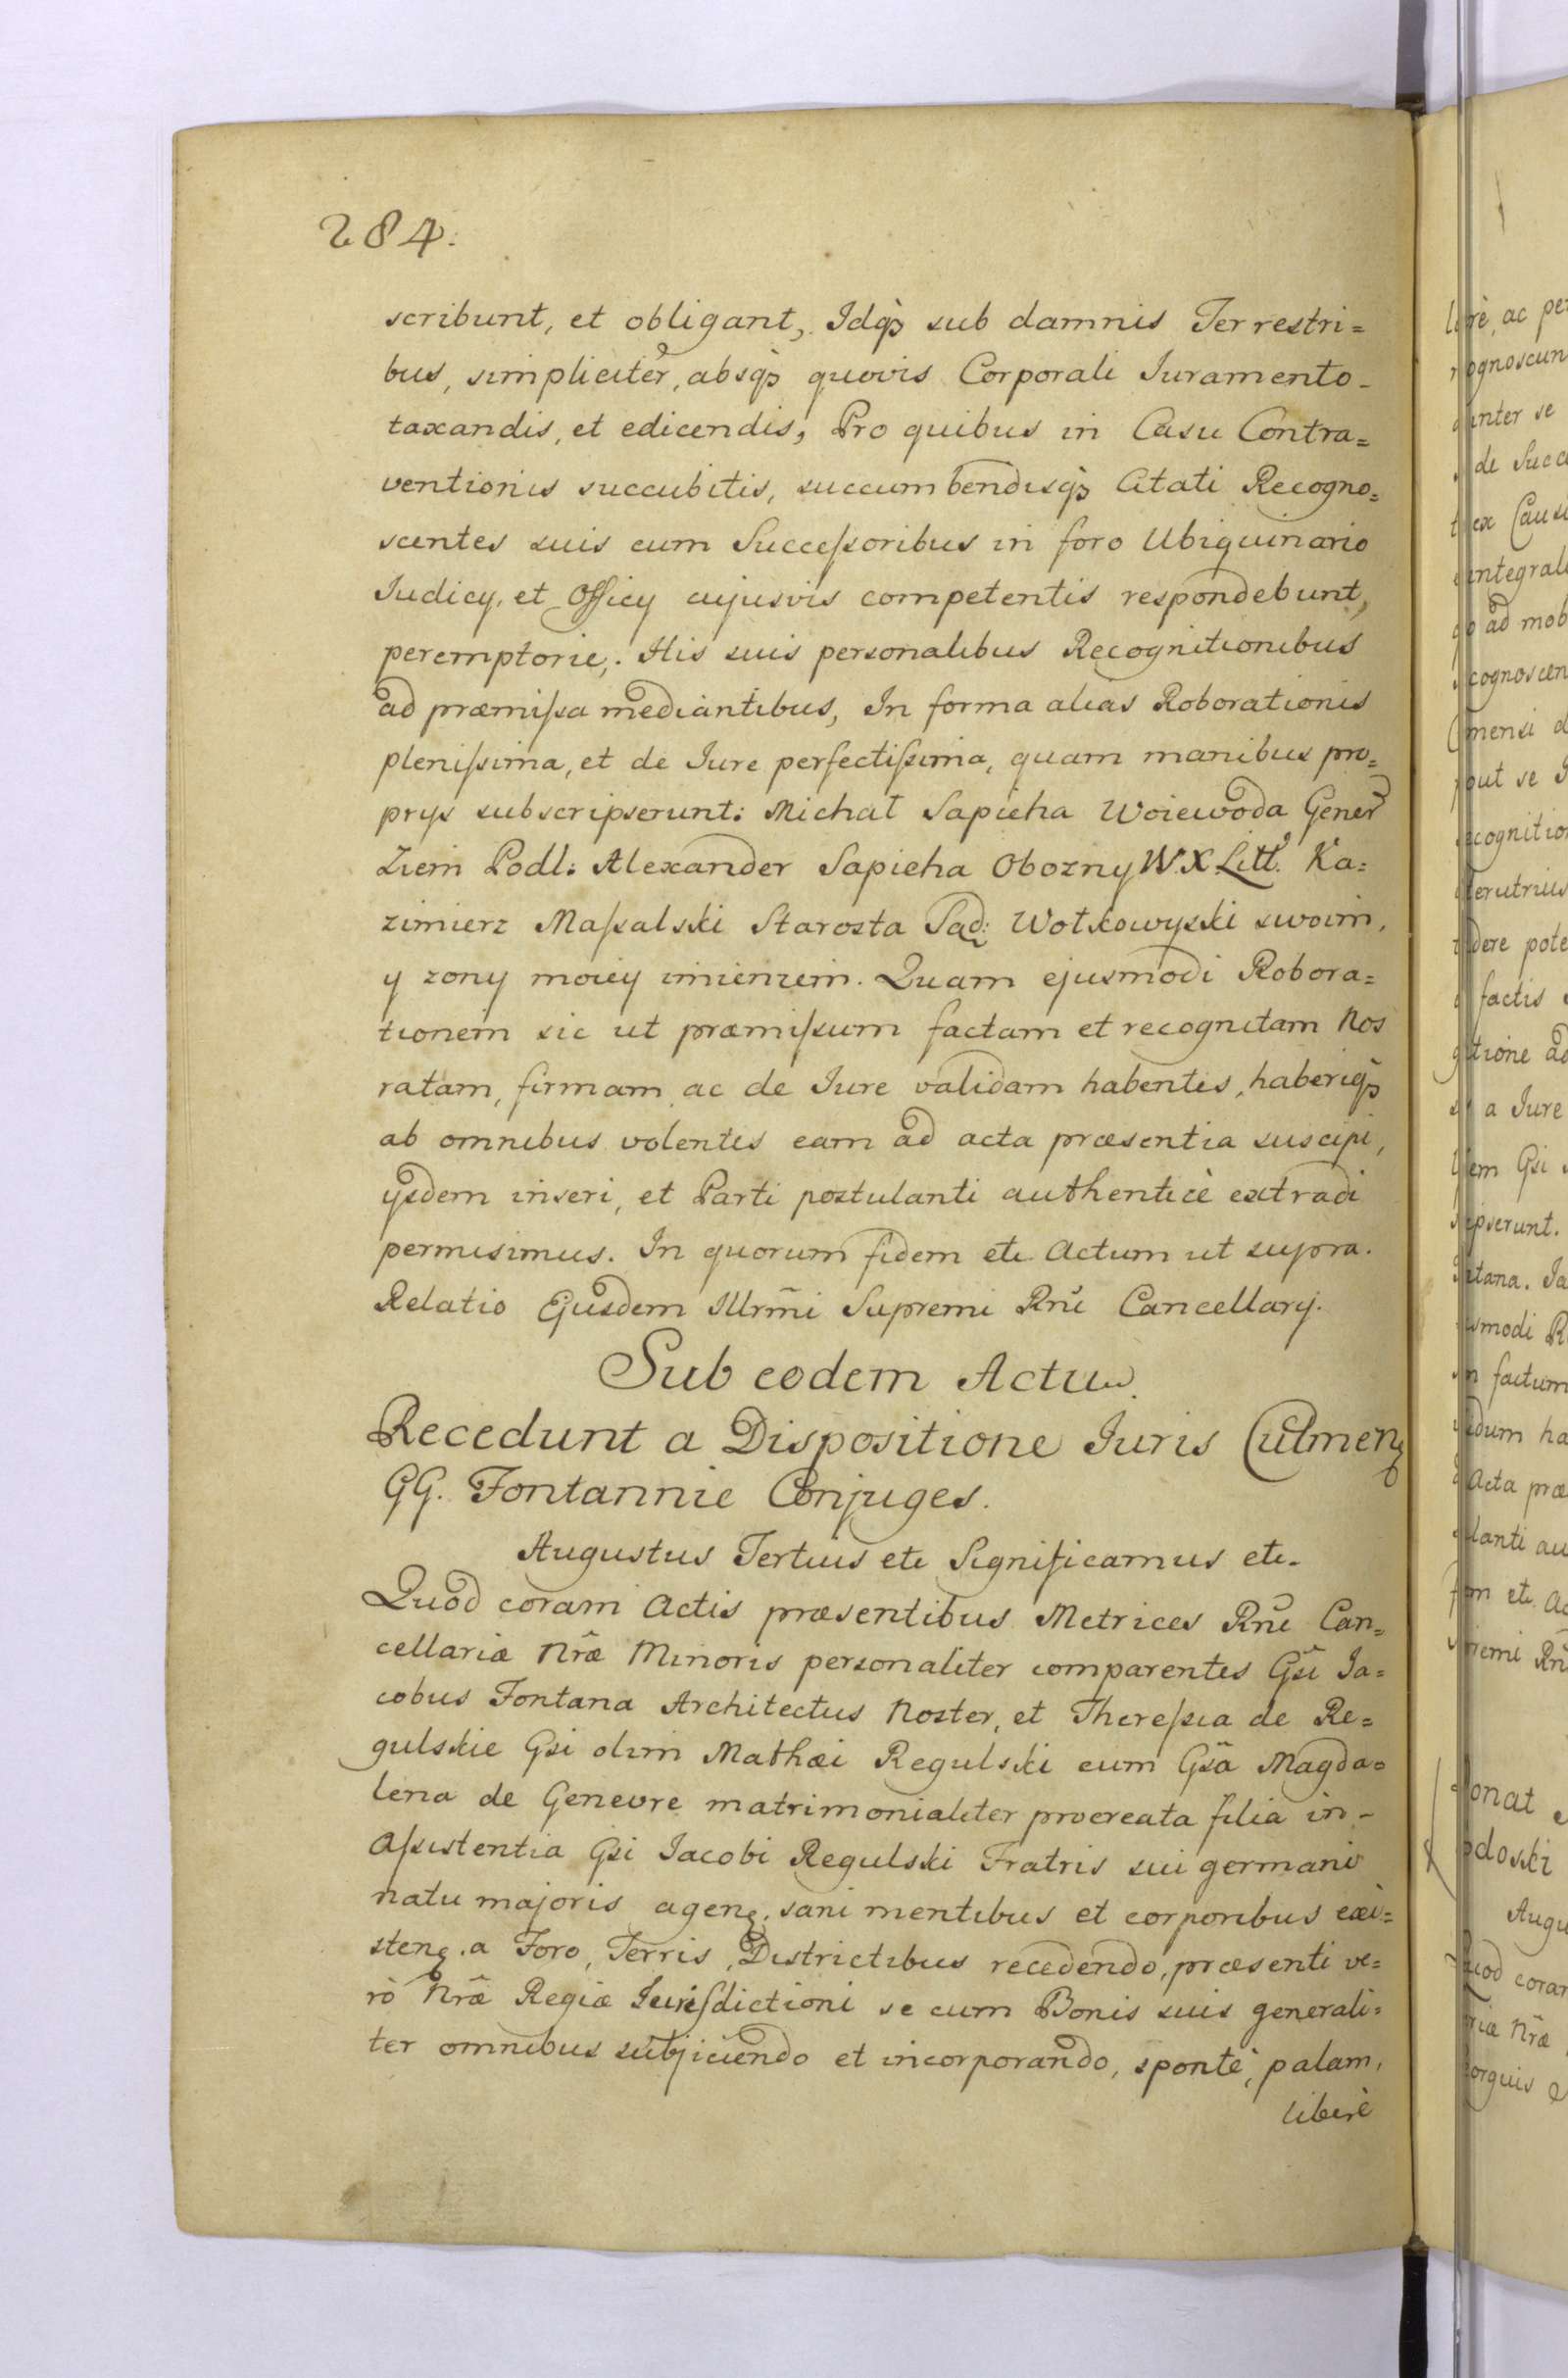 284.
scribunt, et obligant, Idq̃ sub damnis Terrestri=
bus, simpliciter, absq̃ quovis Corporali Juramento
taxandis, et edicendis, Pro quibus in Casu Contra=
ventionis succubitis, succumbendisq̃ Citati Recogno=
scentes suis cum Succeſsoribus in foro Ubiquinario
Judicij, et Officij cujusvis competentis respondebunt,
peremptorie,. His suis personalibus Recognitionibus
ad præmiſsa mediantibus, In forma alias Roborationis
pleniſsima, et de Jure perfectiſsima, quam manibus pro=
prijs subscripserunt: Michał Sapieha Woiewoda Gener
Ziem Podl: Alexander Sapieha Obozny W.X.Litt. Ka=
zimierz Maſsalski Starosta Sąd: Wołkowyski swoim,
y zony moiey imieniem. Quam ejusmodi Robora=
tionem sic ut præmiſsum factam et recognitam Nos
ratam, firmam ac de Jure validam habentes, haberiq̃
ab omnibus volentes eam ad acta præsentia suscipi,
ijsdem inseri, et Parti postulanti authenticè extradi
permisimus. In quorum fidem etc Actum ut supra.
Relatio Ejusdem Illrm̃i Supremi Rn̄i Cancellarij.
Sub eodem Actu.
Recedunt a Dispositione Juris Culmen
GG. Fontannie Conjuges.
Augustus Tertius etc Significamus etc.
Quod coram Actis præsentibus Metrices Rn̄i Can=
cellariæ Nr̃æ Minoris personaliter comparentes Gs̃i Ja=
cobus Fontana Architectus Noster, et Thereſsia de Re=
gulskie Gsi olim Mathæi Regulski cum Gs̃a Magda=
lena de Genevre matrimonialiter procreata filia in
Aſsistentia Gsi Jacobi Regulski Fratris sui germani
natu majoris agen. sani mentibus et corporibus exi=
sten. a Foro, Terris, Districtibus recedendo, præsenti ve=
rò Nr̃æ Regiæ Jurisdictioni se cum Bonis suis generali=
ter omnibus subjiciendo et incorporando, spontè, palam,
liberè